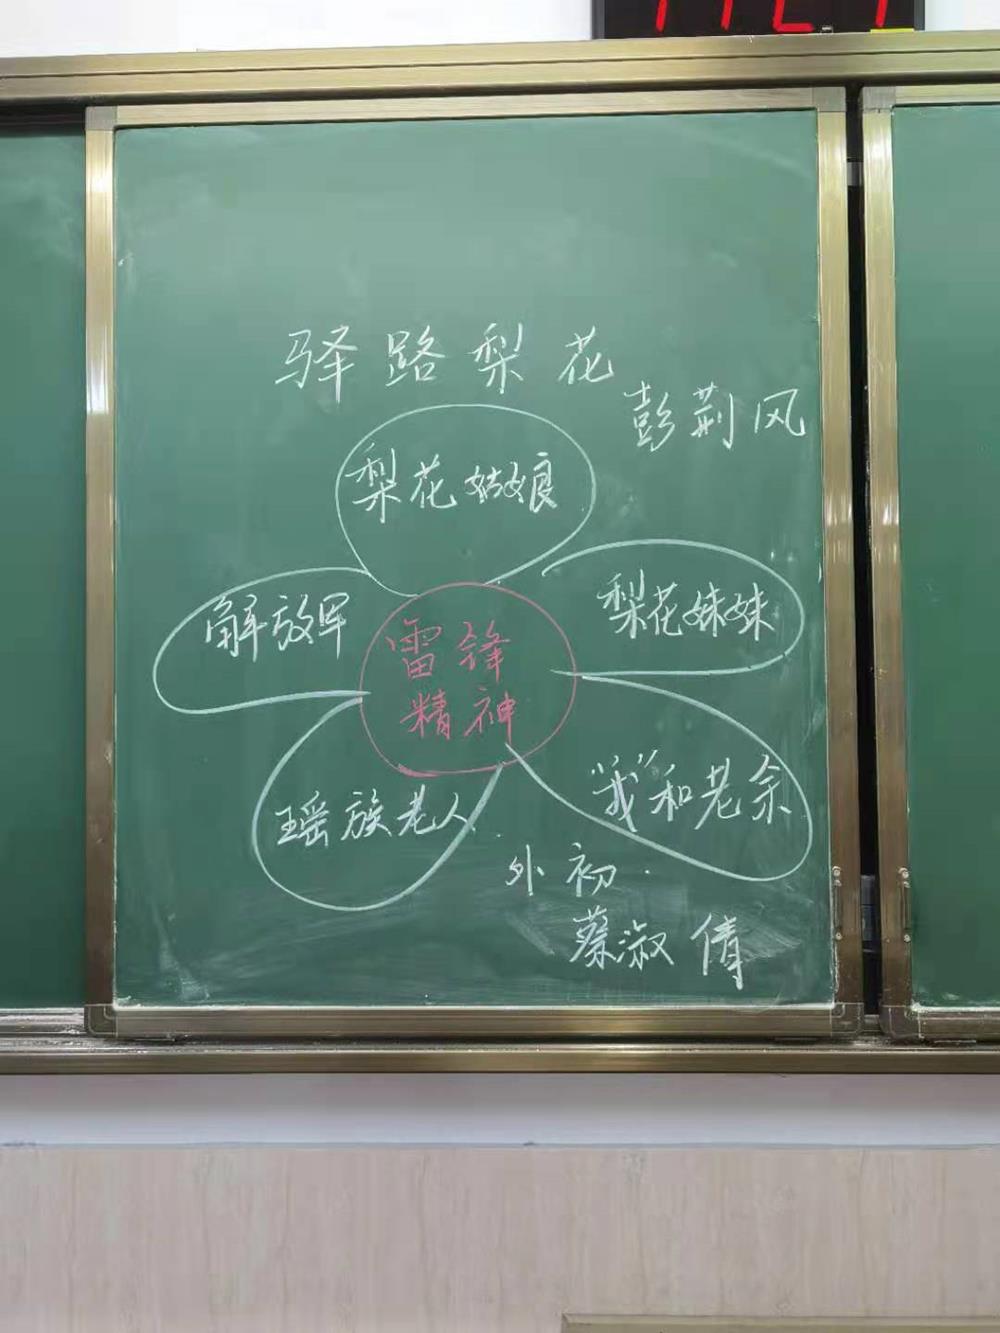 驿路梨花
彭荆风
梨花姑娘
解放军
梨花妹妹
雷锋
精神
瑶族老人
"我"和老余
外初
蔡淑倩